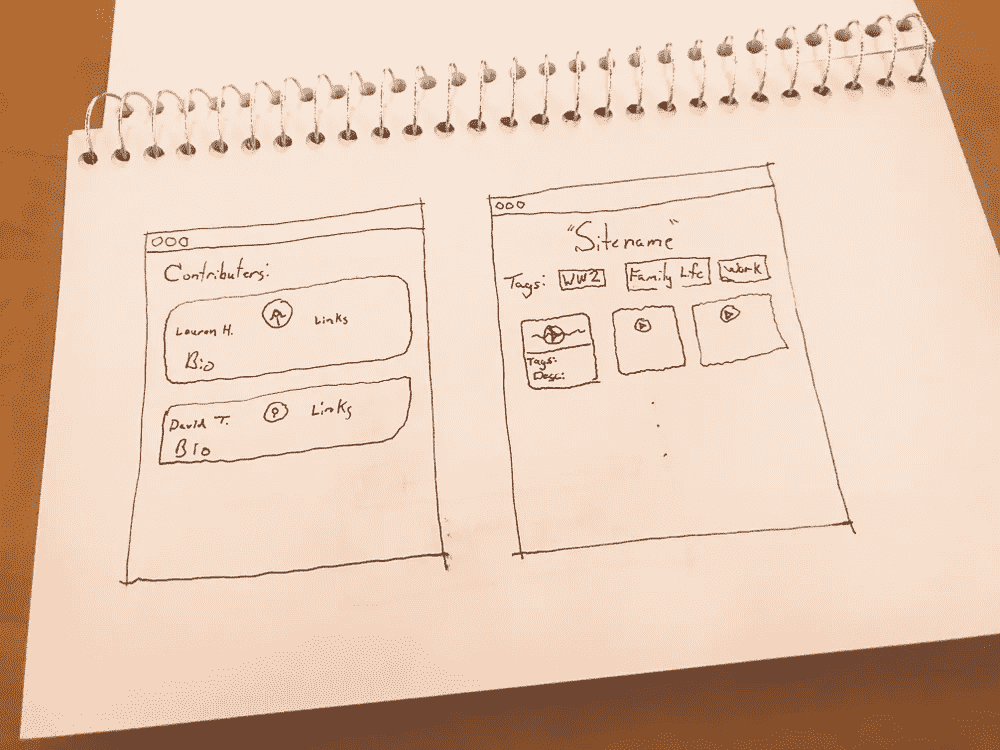 Contributers:
Lauren H.
Links
Bio
David T.
Links
Bio
"Sitename"
Tags: WW2 Family Life Work
Tags:
Desc: